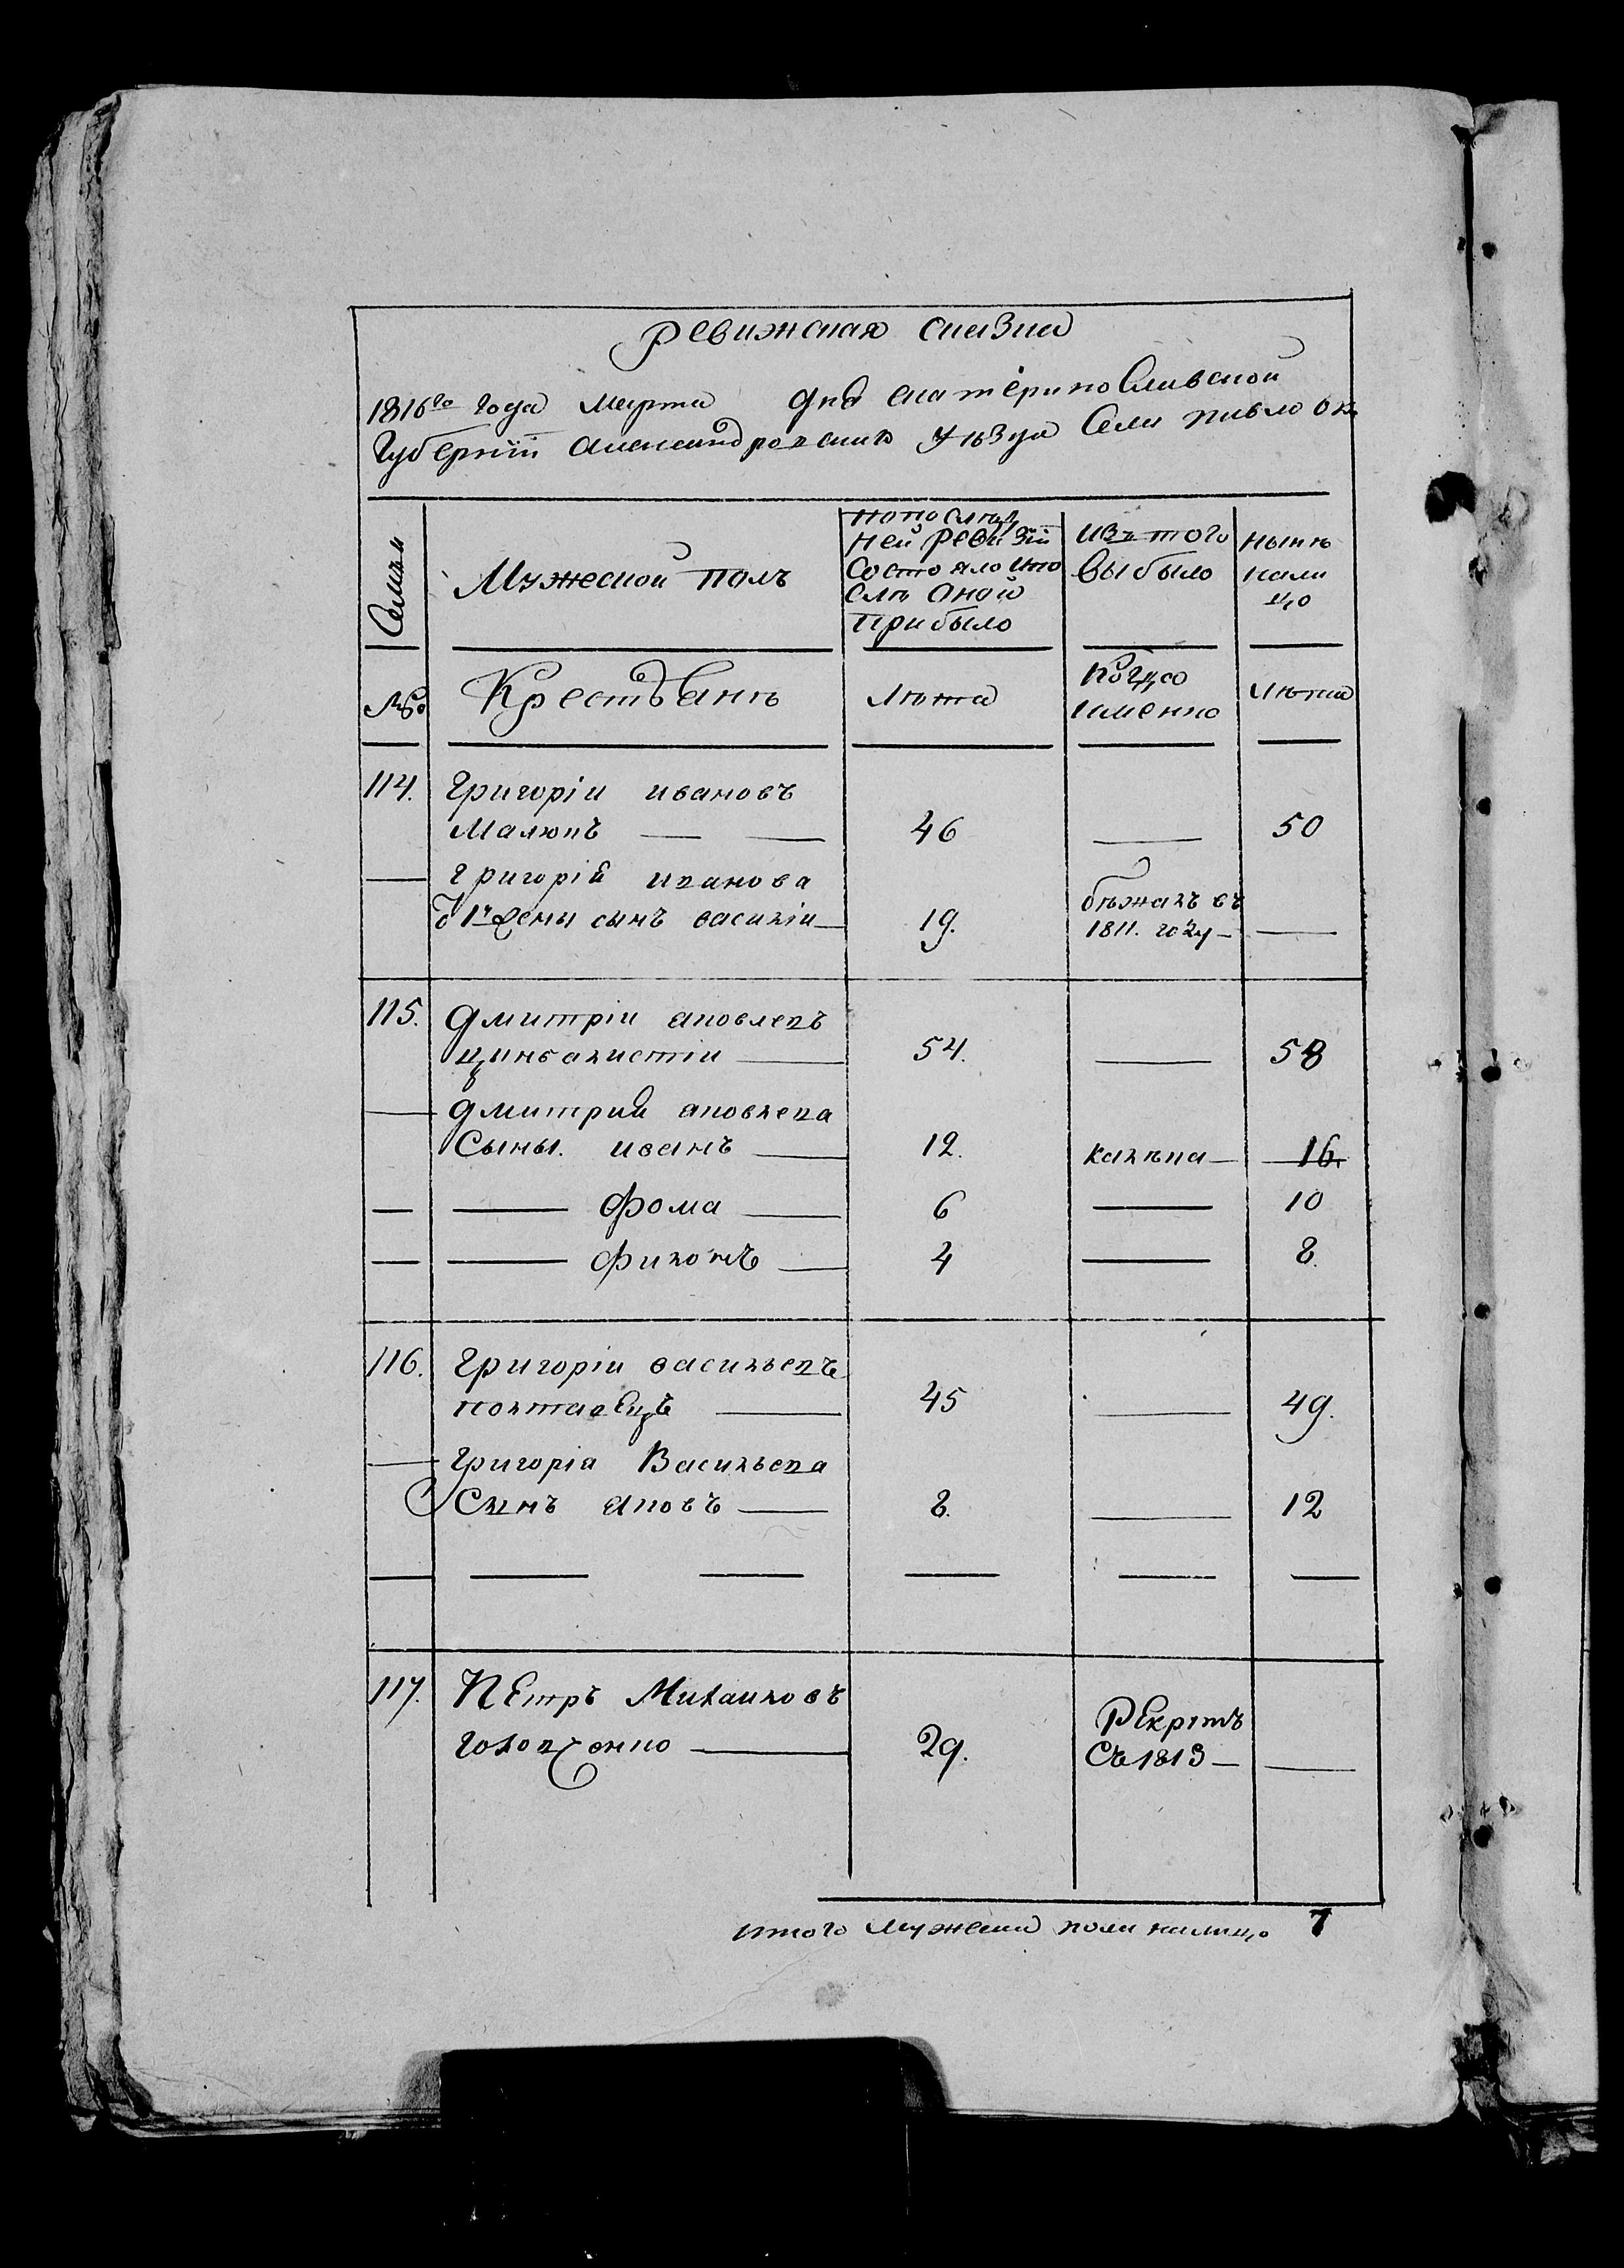 Ревижская сказка
1816го года Марта дня екатеринославской
Губернїи александровскаго уѣзда Села павловк
Семьи
Мужеской полъ
по послѣд
ней ревизїи
состояло и по
слѣ оной
прибыло
изъ того
выбыло
нынѣ
нали
цо
№
Крестьянѣ
лѣта
когда
именно
лѣта
114. Григорїи ивановъ
Малюкъ — — 46 — 50
— григорїя иванова
о 1й жены сынъ василїи — 19. бѣжалъ въ
1811. году — —
115. Дмитрїи яковлевъ
цинбалистїи — 54. — 58
— Дмитрия яковлева
Сыны. иванъ — 12. калѣка — 16.
— — фома — 6 — 10
— — филонъ — 4 — 8.
116. Григорїи васильевъ
полтавецъ — 45 — 49.
— Григорїа Васильева
Сынъ яковъ — 8. — 12
— — — — — —
117. Петръ Михаиловъ
головченко — 29. Рекрутъ
съ 1813 — —
итого мужеска пола налицо 7